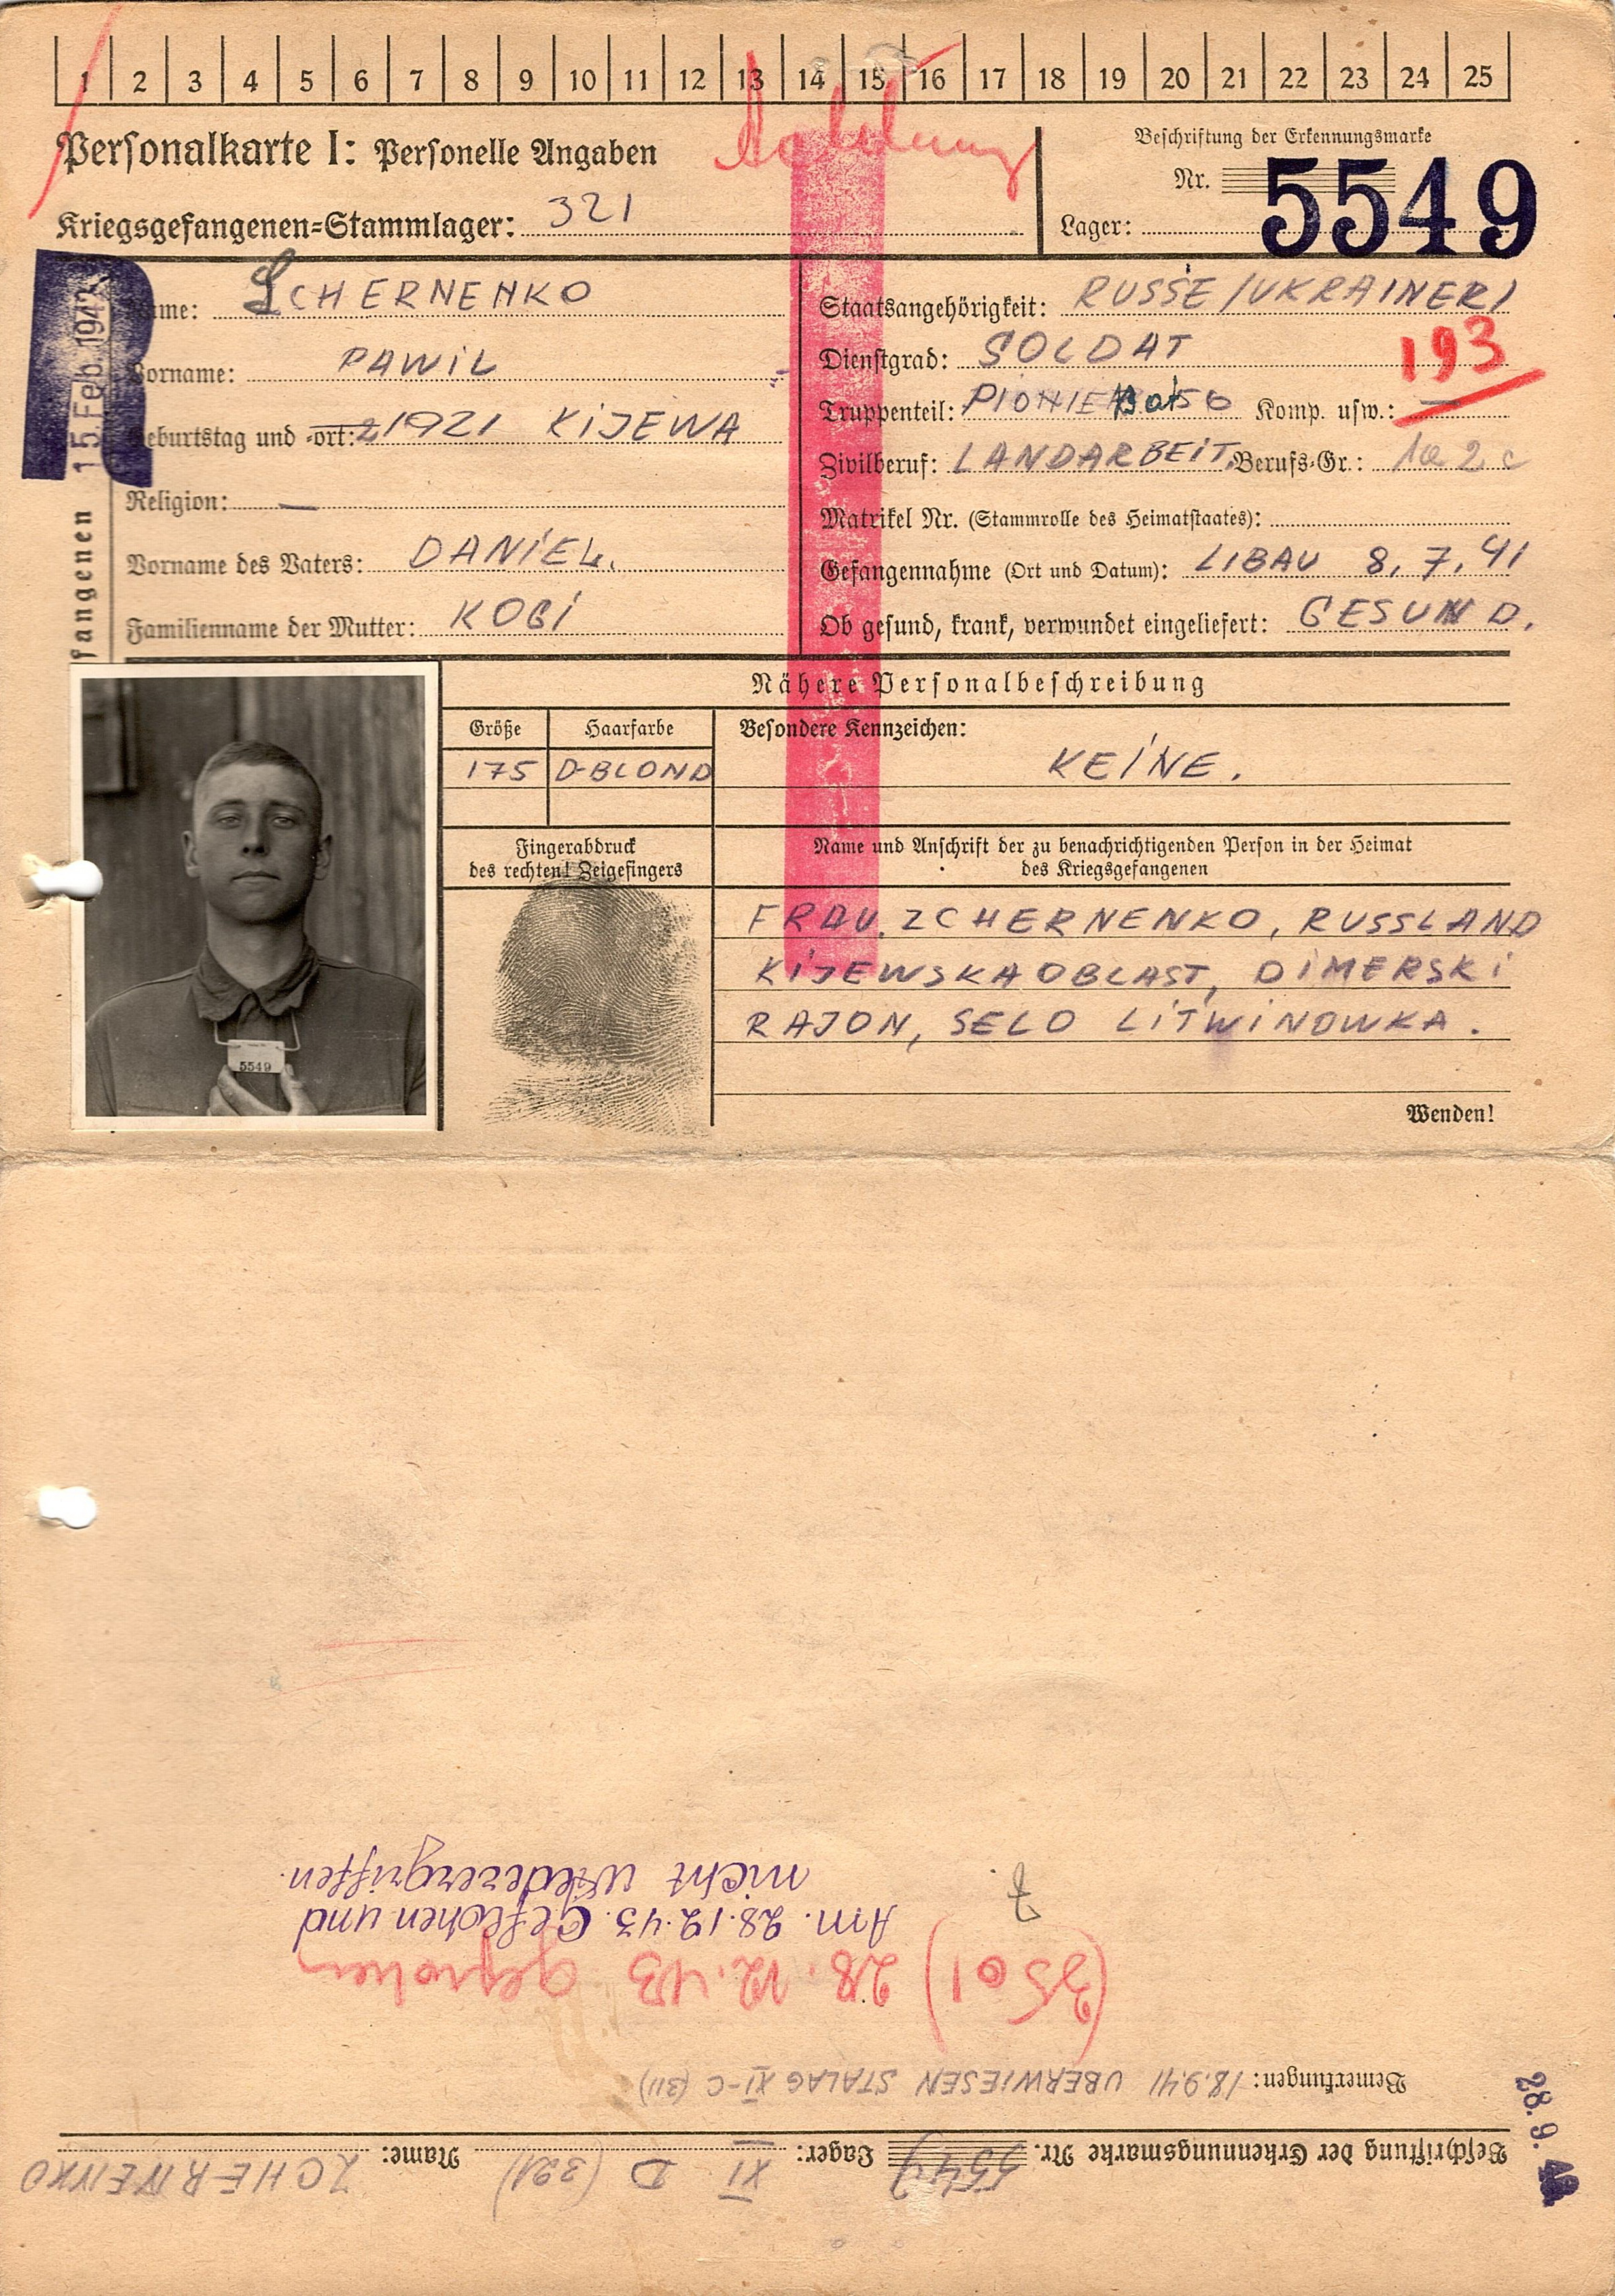 1 2 3 4 5 6 7 8 9 10 11 12 13 14 15 16 17 18 19 20 21 22 23 24 25
Personalkarte I: Personelle Angaben
Achtung
Beschriftung der Erkennungsmarke
Nr. 5549
Kriegsgefangenen-Stammlager: 321
Lager:
R
15. Feb. 1942
fangenen
Name: SCHERNENKO
Vorname: PAWIL
Geburtstag und -ort: 1921 KIJEWA
Religion: —
Vorname des Vaters: DANIEL.
Familienname der Mutter: KOGI
Staatsangehörigkeit: RUSSE/UKRAINER/
Dienstgrad: SOLDAT
193
Truppenteil: PIONIER Bat 56 Komp. usw.: —
Zivilberuf: LANDARBEIT. Berufs-Gr.: 1a 2 c
Matrikel Nr. (Stammrolle des Heimatstaates):
Gefangennahme (Ort und Datum): LIBAU 8.7.41
Ob gesund, krank, verwundet eingeliefert: GESUND.
Nähere Personalbeschreibung
Größe Haarfarbe Besondere Kennzeichen:
175 D-BLOND KEINE.
5549
Fingerabdruck
des rechten! Zeigefingers
Name und Anschrift der zu benachrichtigenden Person in der Heimat
des Kriegsgefangenen
FRAU. ZCHERNENKO, RUSSLAND
KIJEWSKAOBLAST, DIMERSKI
RAJON, SELO LITWINOWKA.
Wenden!
Beschriftung der Erkennungsmarke Nr. 5549 Lager: XI D (321) Name: ZCHERNENKO
Bemerkungen: 18.9.41 ÜBERWIESEN STALAG XI-C (311)
28.9.
(3501) 28.12.43 geflohen
Am. 28.12.43. Geflohen und
nicht wiederergriffen.